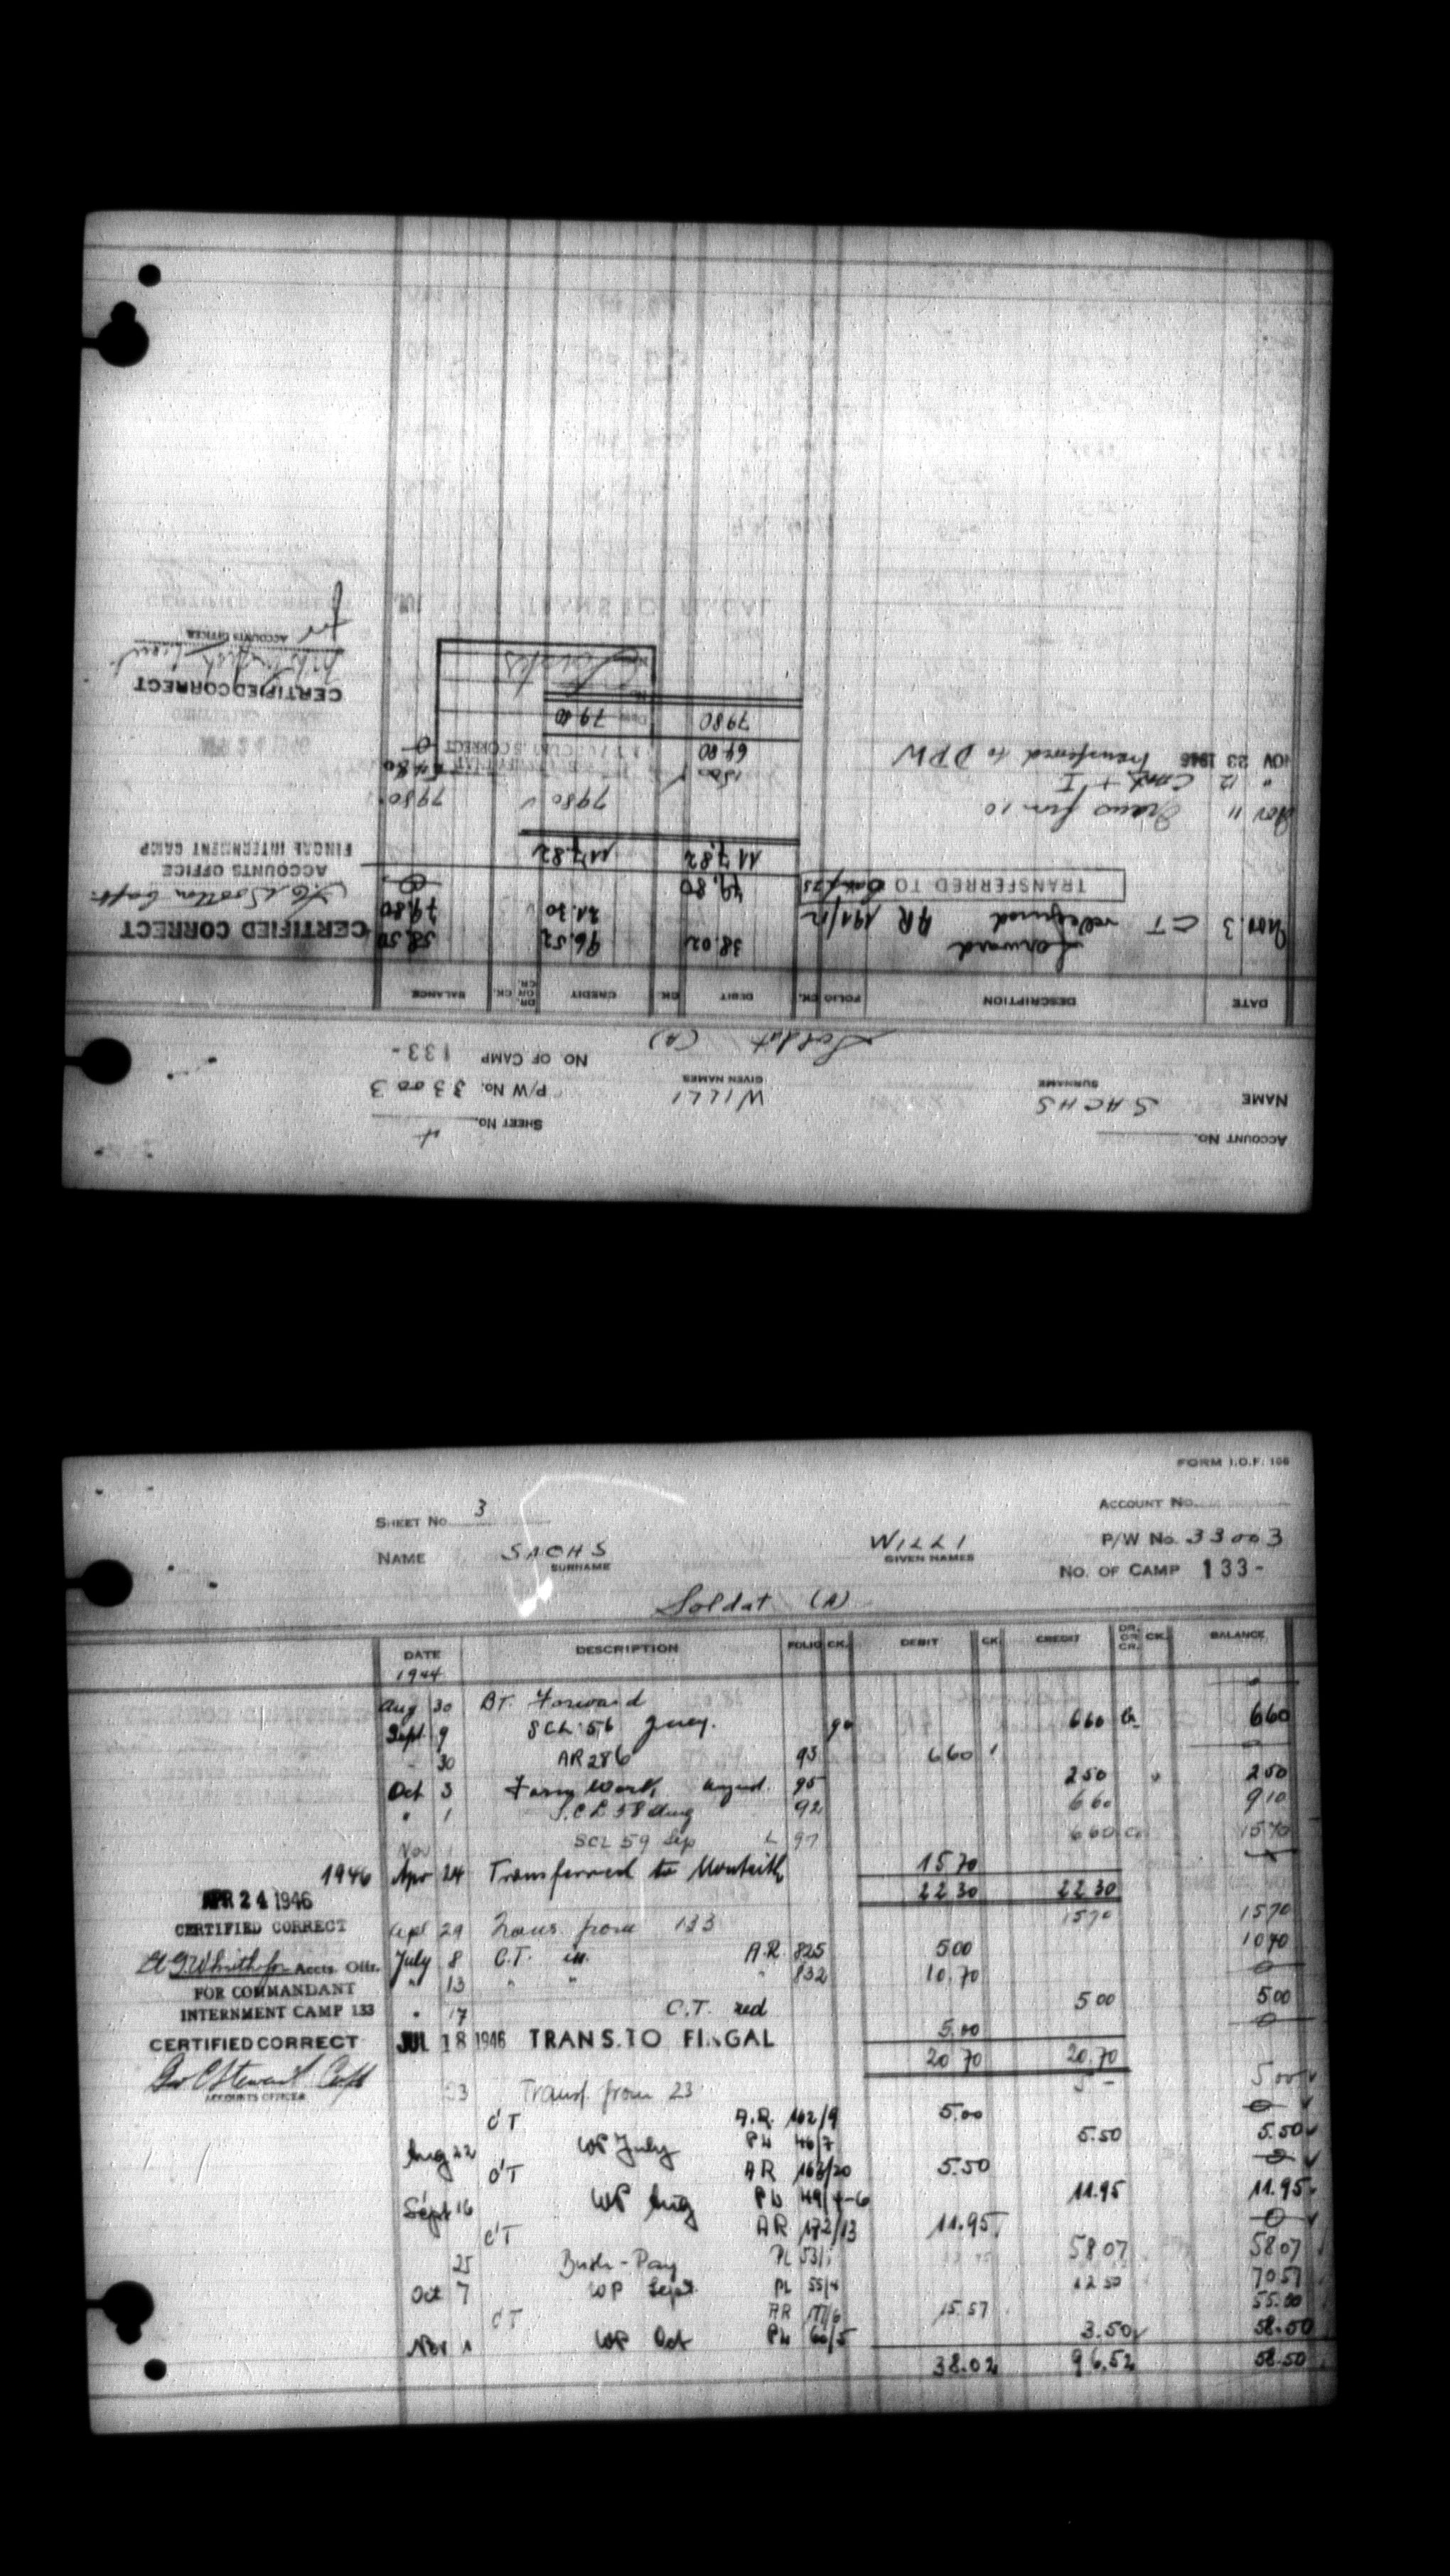 ACCOUNT No.
SHEET No. 4
NAME SACHS WILLI P/W No. 33003
SURNAME GIVEN NAMES
NO OF CAMP 133-
Soldat (A)
DATE DESCRIPTION FOLIO CK. DEBIT CK CREDIT DR OR CR. CK. BALANCE
forward 38.02 96.52 58.50
CERTIFIED CORRECT
Nov. 3 CT AR 191/12 21.30 79.80
TRANSFERRED TO 79.80 0
ACCOUNTS OFFICE
FINGAL INTERNMENT CAMP
117,82 117,82
Nov 11 Trans from 10 7980 7980
" 12 Cant + I 1500 6480
NOV 23 1946 Transferred to DPW 6480 0
7980 7980
CERTIFIED CORRECT
ACCOUNTS OFFICER
for
FORM I.O.F. 106
ACCOUNT No.
SHEET No 3
P/W No. 33003
NAME SACHS WILLI
SURNAME GIVEN NAMES
NO. OF CAMP 133-
Soldat (A)
DATE DESCRIPTION FOLIO CK. DEBIT CK CREDIT DR. OR CR. CK. BALANCE
1944
Aug 30 BT. Forward
Sept. 9 SCL 56 90 660 Cr 660
30 AR 286 93 660
Oct 3 Farm Work August 95 250 250
" 1 S.C.L 58 Aug 92 660 910
Nov 1 SCL 59 Sep 97 660 Cr 1570
1946 Apr 24 Transferred to Monteith 15 70
22 30 22 30
APR 24 1946
CERTIFIED CORRECT
Accts. Offr.
FOR COMMANDANT
INTERNMENT CAMP 133
Apl 29 Trans. from 133 1570 1570
July 8 C.T. in. A.R. 825 500 1070
" 13 " " " 832 10.70 0
" 17 C.T. red 5 00 5.00
CERTIFIED CORRECT
JUL 18 1946 TRANS. TO FINGAL 5.00 0
20 70 20.70
ACCOUNTS OFFICER
23 Transf. from 23 5 - 5 00
CT A.R. 162/9 5.00 0
Aug 22 WP July PL 46/7 5.50 5.50
CT AR 163/20 5.50 0
Sept 16 WP Aug PL 49/4-6 11.95 11.95
CT AR 172/13 11.95 0
25 Bush-Pay PL 53/1 58 07 5807
Oct 7 WP Sept. PL 55/4 12 50 7057
CT AR 177/6 15.57 55.00
Nov 1 WP Oct PL 60/5 3.50 58.50
38.02 96.52 58.50